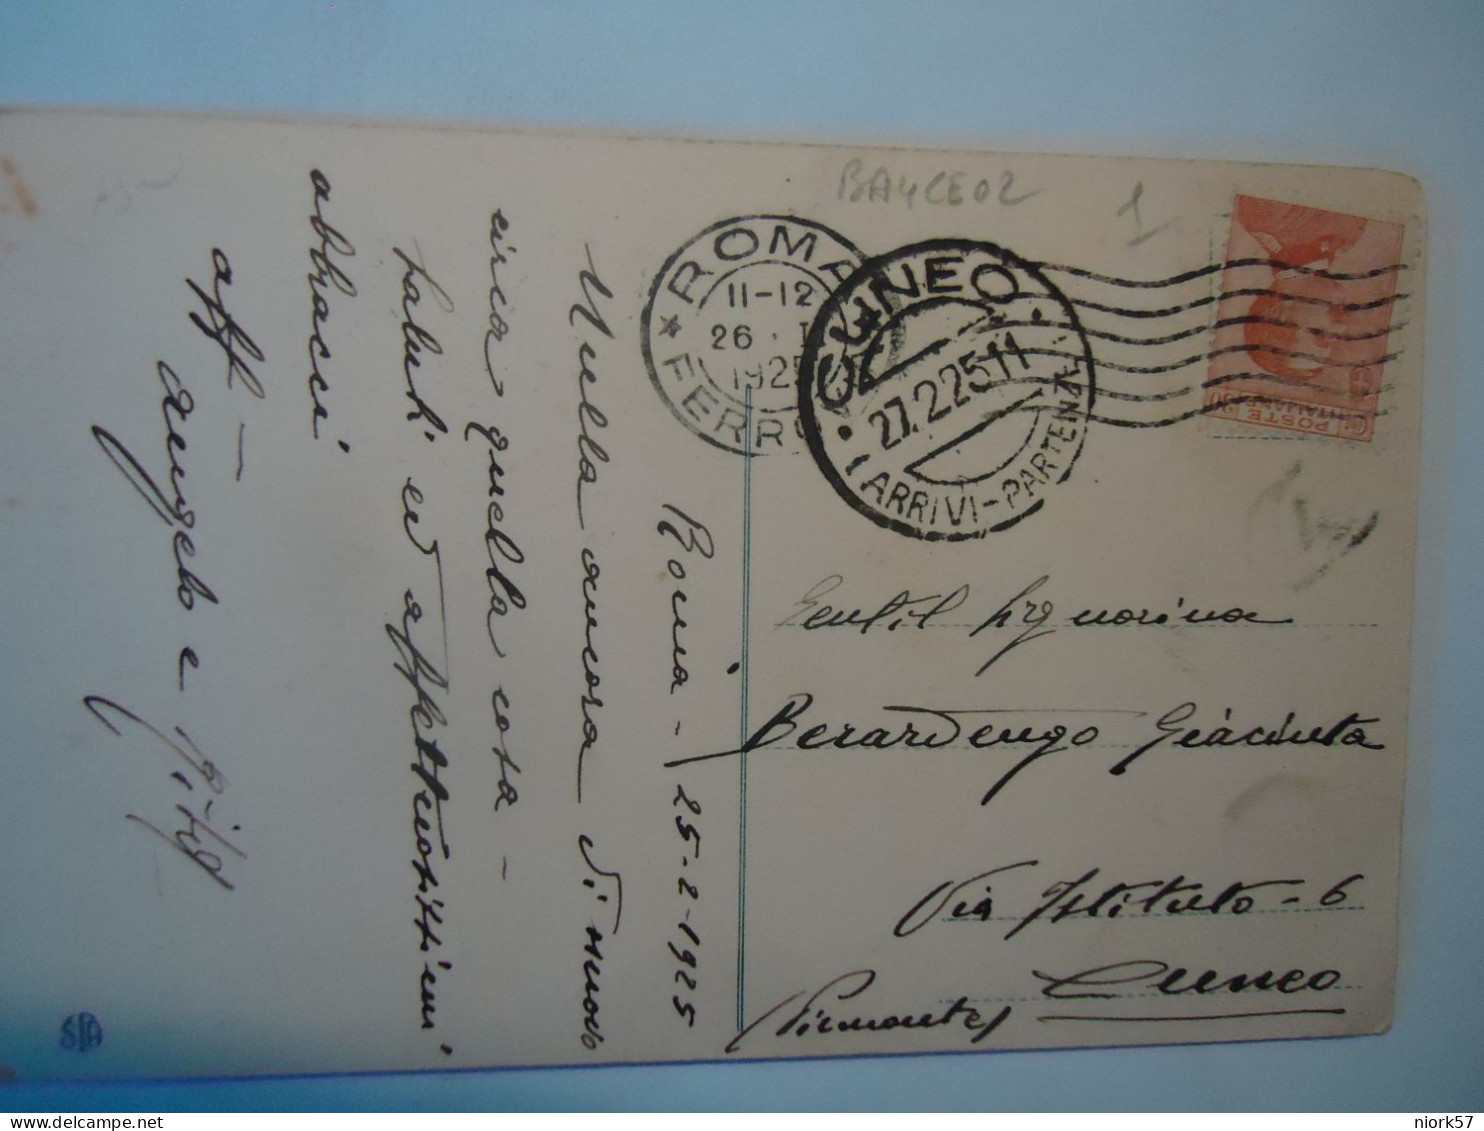 BAYCE02
1
ROMA
11-12
26 . I
1925
FERROVIA
CUNEO
27.2.25.11
(ARRIVI-PARTENZE)
POSTE
ITALIANE
20 20
Roma - 25-2-1925
Nulla ancora di nuovo
circa quella cosa -
saluti ed affettuosissimi
abbracci
aff -
Angelo e
Gentil Signorina
Berardengo Giacinta
Via Istituto - 6
Cuneo
(Piemonte)
SIA
niork57